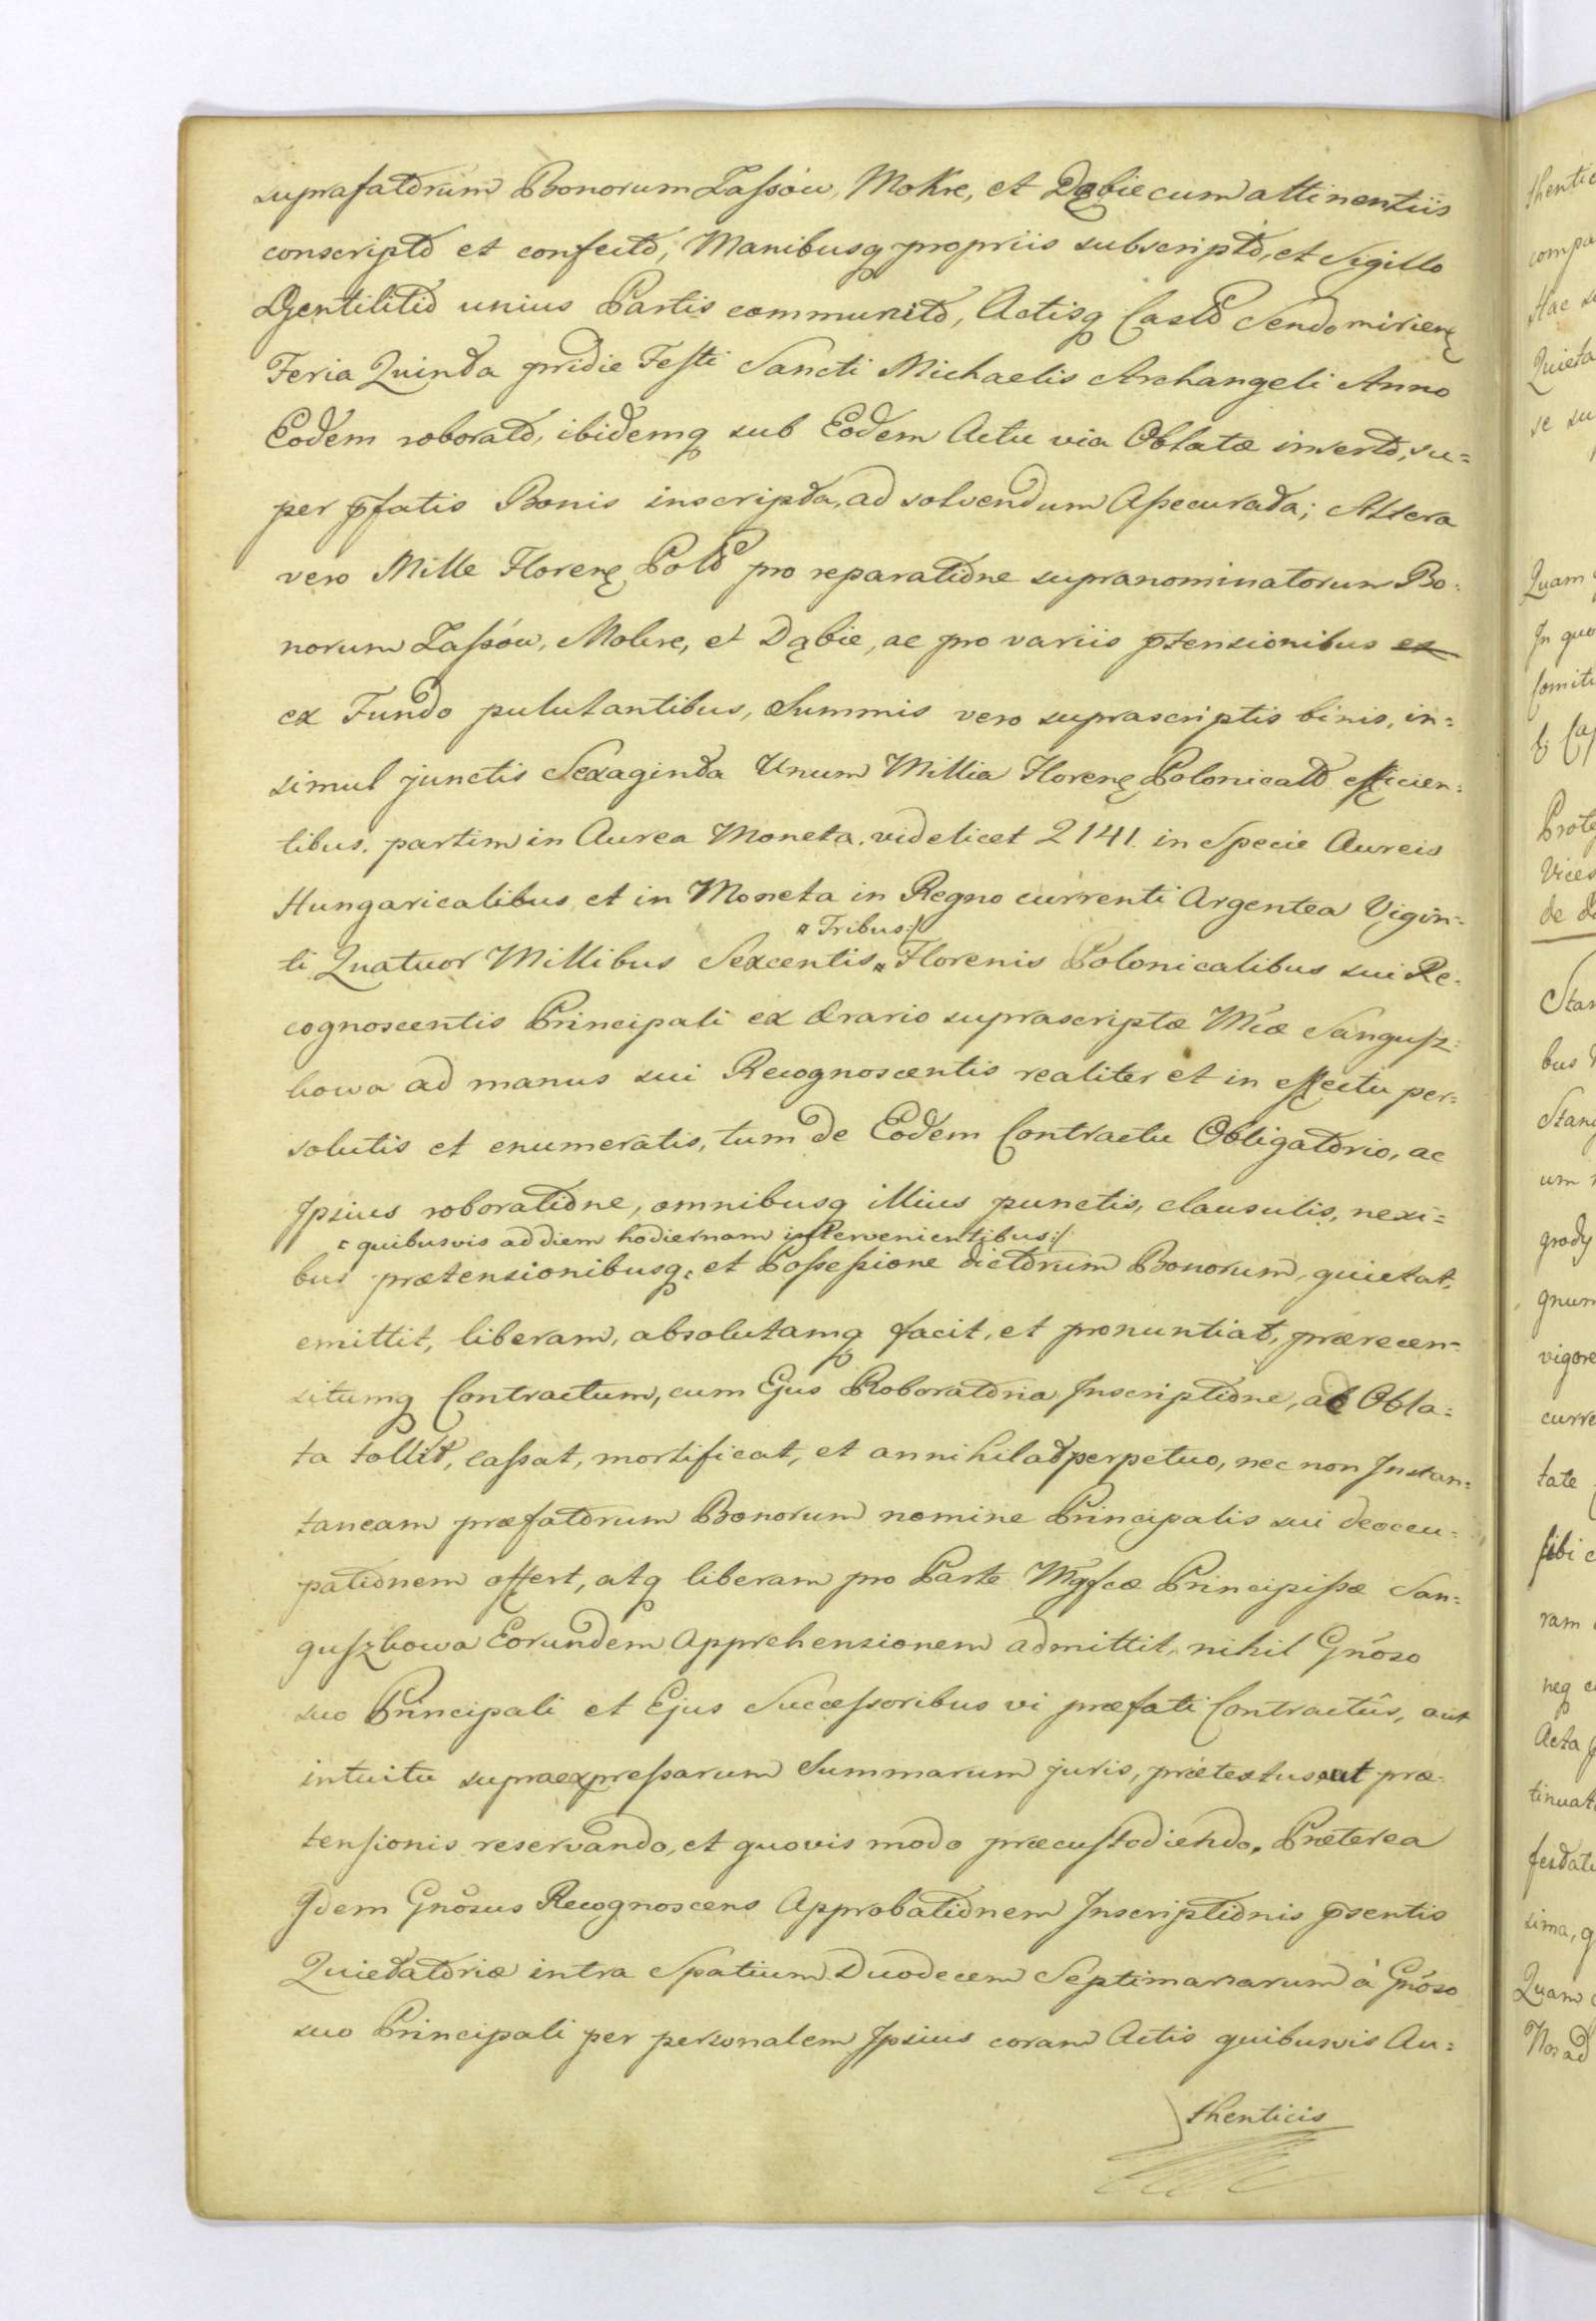 suprafatorum Bonorum Lassów, Mokre, et Dąbie cum attinentiis
conscripto et confecto, Manibusq propriis subscripto, et Sigillo
Gentilitio unius Partis communito, Actisq Castr Sendomirien
Feria Quinta pridie Festi Sancti Michaelis Archangeli Anno
Eodem roborato, ibidemq sub Eodem Actu via Oblatæ inserto, su=
per pfatis Bonis inscripta, ad solvendum Assecurata; Altera
vero Mille Floren Pol pro reparatione supranominatorum Bo=
norum Lassów, Mokre, et Dąbie, ac pro variis ptensionibus ex
ex Fundo pululantibus, Summis vero suprascriptis binis, in=
simul junctis Sexaginta Unum Millia Floren Polonical efficien=
tibus. partim in Aurea Moneta. videlicet 2141. in Specie Aureis
Hungaricalibus et in Moneta in Regno currenti Argentea Vigin=
¤ Tribus:/
ti Quatuor Millibus Sexcentis ¤ Florenis Polonicalibus sui Re=
cognoscentis Principali ex Ærario suprascriptæ Mcæ Sangusz=
kowa ad manus sui Recognoscentis realiter et in effectu per=
solutis et enumeratis, tum de Eodem Contractu Obligatorio, ac
Ipsius roboratione, omnibusq illius punctis, clausulis, nexi=
: quibusvis ad diem hodiernam intervenientibus:/
bus prætensionibusq: et Possessione dictorum Bonorum, quietat,
emittit, liberam, absolutamq facit, et pronuntiat, prærecen=
situmq Contractum, cum Ejus Roboratoria Inscriptione, ac Obla=
ta tollit, cassat, mortificat, et annihilat perpetuo, nec non Instan=
taneam præfatorum Bonorum nomine Principalis sui deoccu=
pationem offert, atq liberam pro Parte Mgfcæ Principissæ San=
guszkowa Eorundem Apprehensionem admittit, nihil Gnoso
suo Principali et Ejus Successoribus vi præfati Contractûs, aut
intuitu supraexpressarum Summarum juris, prætextus aut præ=
tensionis reservando, et quovis modo præcustodiendo. Præterea
Idem Gnosus Recognoscens Approbationem Inscriptionis psentis
Quietatoriæ intra Spatium Duodecem Septimanarum à Gnoso
suo Principali per personalem Ipsius coram Actis quibusvis Au=
thenticis